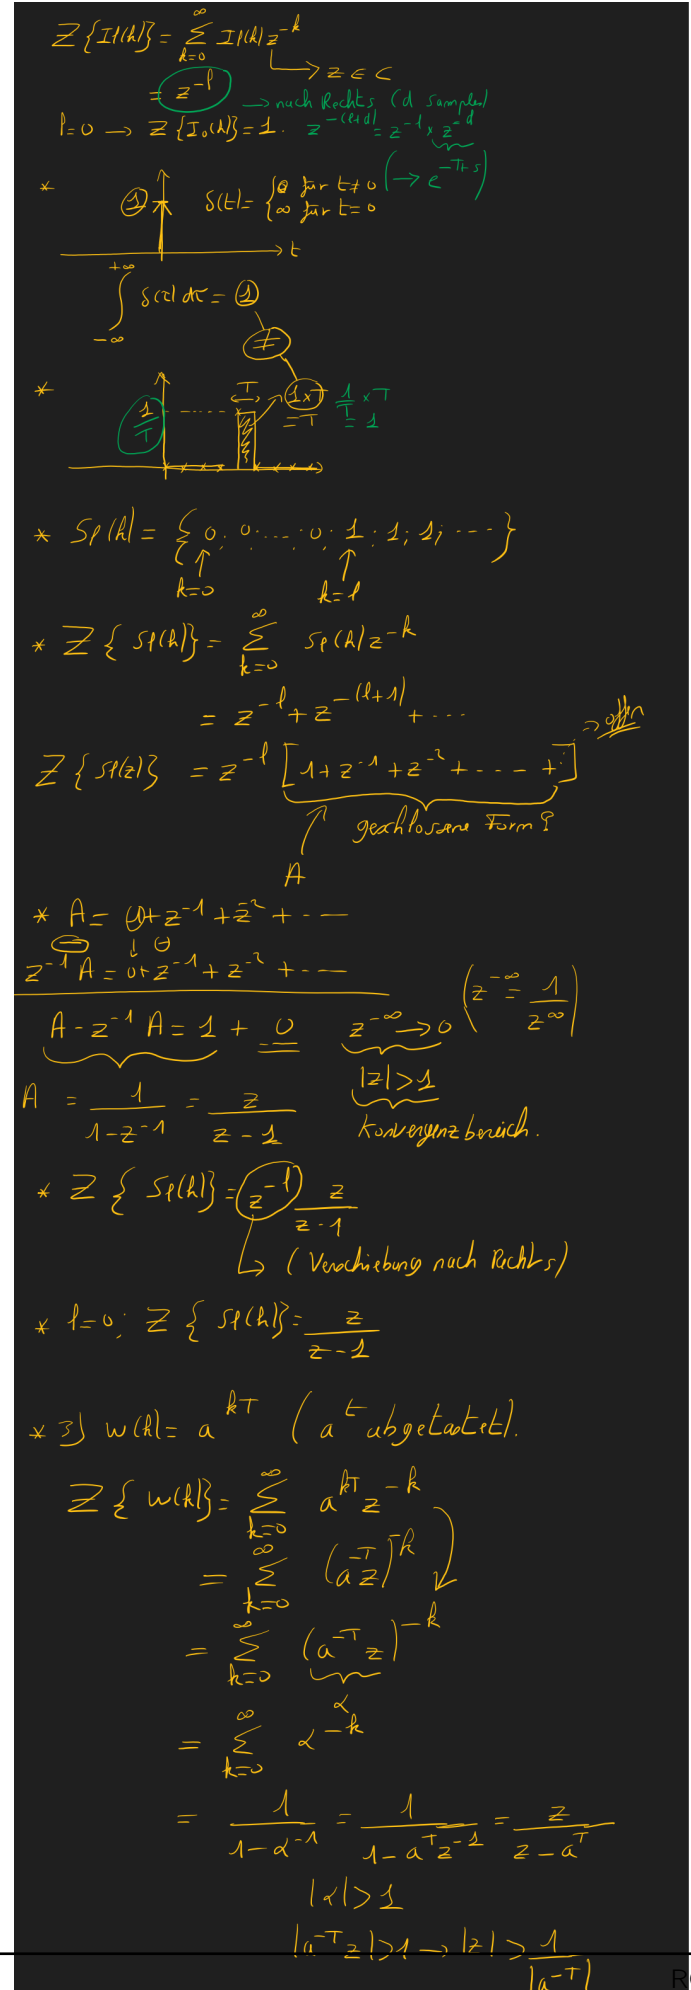 Z{Il(k)} = ∑_{k=0}^{∞} Il(k) z^{-k}
→ z ∈ C
= z^{-l} → nach Rechts (d samples)
l=0 → Z{I₀(k)} = 1. z^{-(l+d)} = z^{-l} × z^{-d}
(→ e^{-T·s})
* 1 δ(t) = { 0 für t≠0
∞ für t=0
t
∫_{-∞}^{+∞} δ(τ) dτ = 1
≠
* T 1×T 1/T × T
1/T = T = 1
* Sl(k) = { 0; 0; ...; 0; 1; 1; 1; ---- }
k=0 k=l
* Z{ Sl(k)} = ∑_{k=0}^{∞} Sl(k) z^{-k}
= z^{-l} + z^{-(l+1)} + ...
⇒ offen
Z{ Sl(z)} = z^{-l} [1 + z^{-1} + z^{-2} + ---- + ]
geschlossene Form?
A
* A = 1 + z^{-1} + z^{-2} + ---
z^{-1} A = 0 + z^{-1} + z^{-2} + ---
(z^{-∞} = 1/z^{∞})
A - z^{-1} A = 1 + 0 z^{-∞} → 0
|z| > 1
A = 1/(1-z^{-1}) = z/(z-1) Konvergenzbereich.
* Z { Sl(k)} = z^{-l} z/(z-1)
↳ (Verschiebung nach Rechts)
* l=0; Z { Sl(k)} = z/(z-1)
* 3) w(k) = a^{kT} (a^t abgetastet).
Z{ w(k)} = ∑_{k=0}^{∞} a^{kT} z^{-k}
= ∑_{k=0}^{∞} (a^{-T} z)^{-k}
= ∑_{k=0}^{∞} (a^{-T} z)^{-k}
α
= ∑_{k=0}^{∞} α^{-k}
= 1/(1-α^{-1}) = 1/(1-a^T z^{-1}) = z/(z-a^T)
|α| > 1
|a^{-T} z| > 1 → |z| > 1/|a^{-T}|